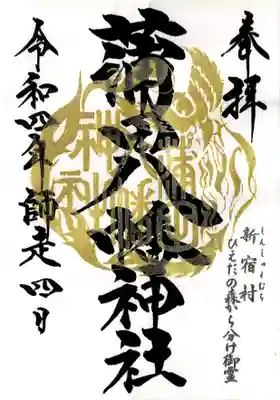 奉拝
しんしゅくむら
新宿村
ひえだの森から分け御霊
蒲田八幡神社
令和四年師走四日